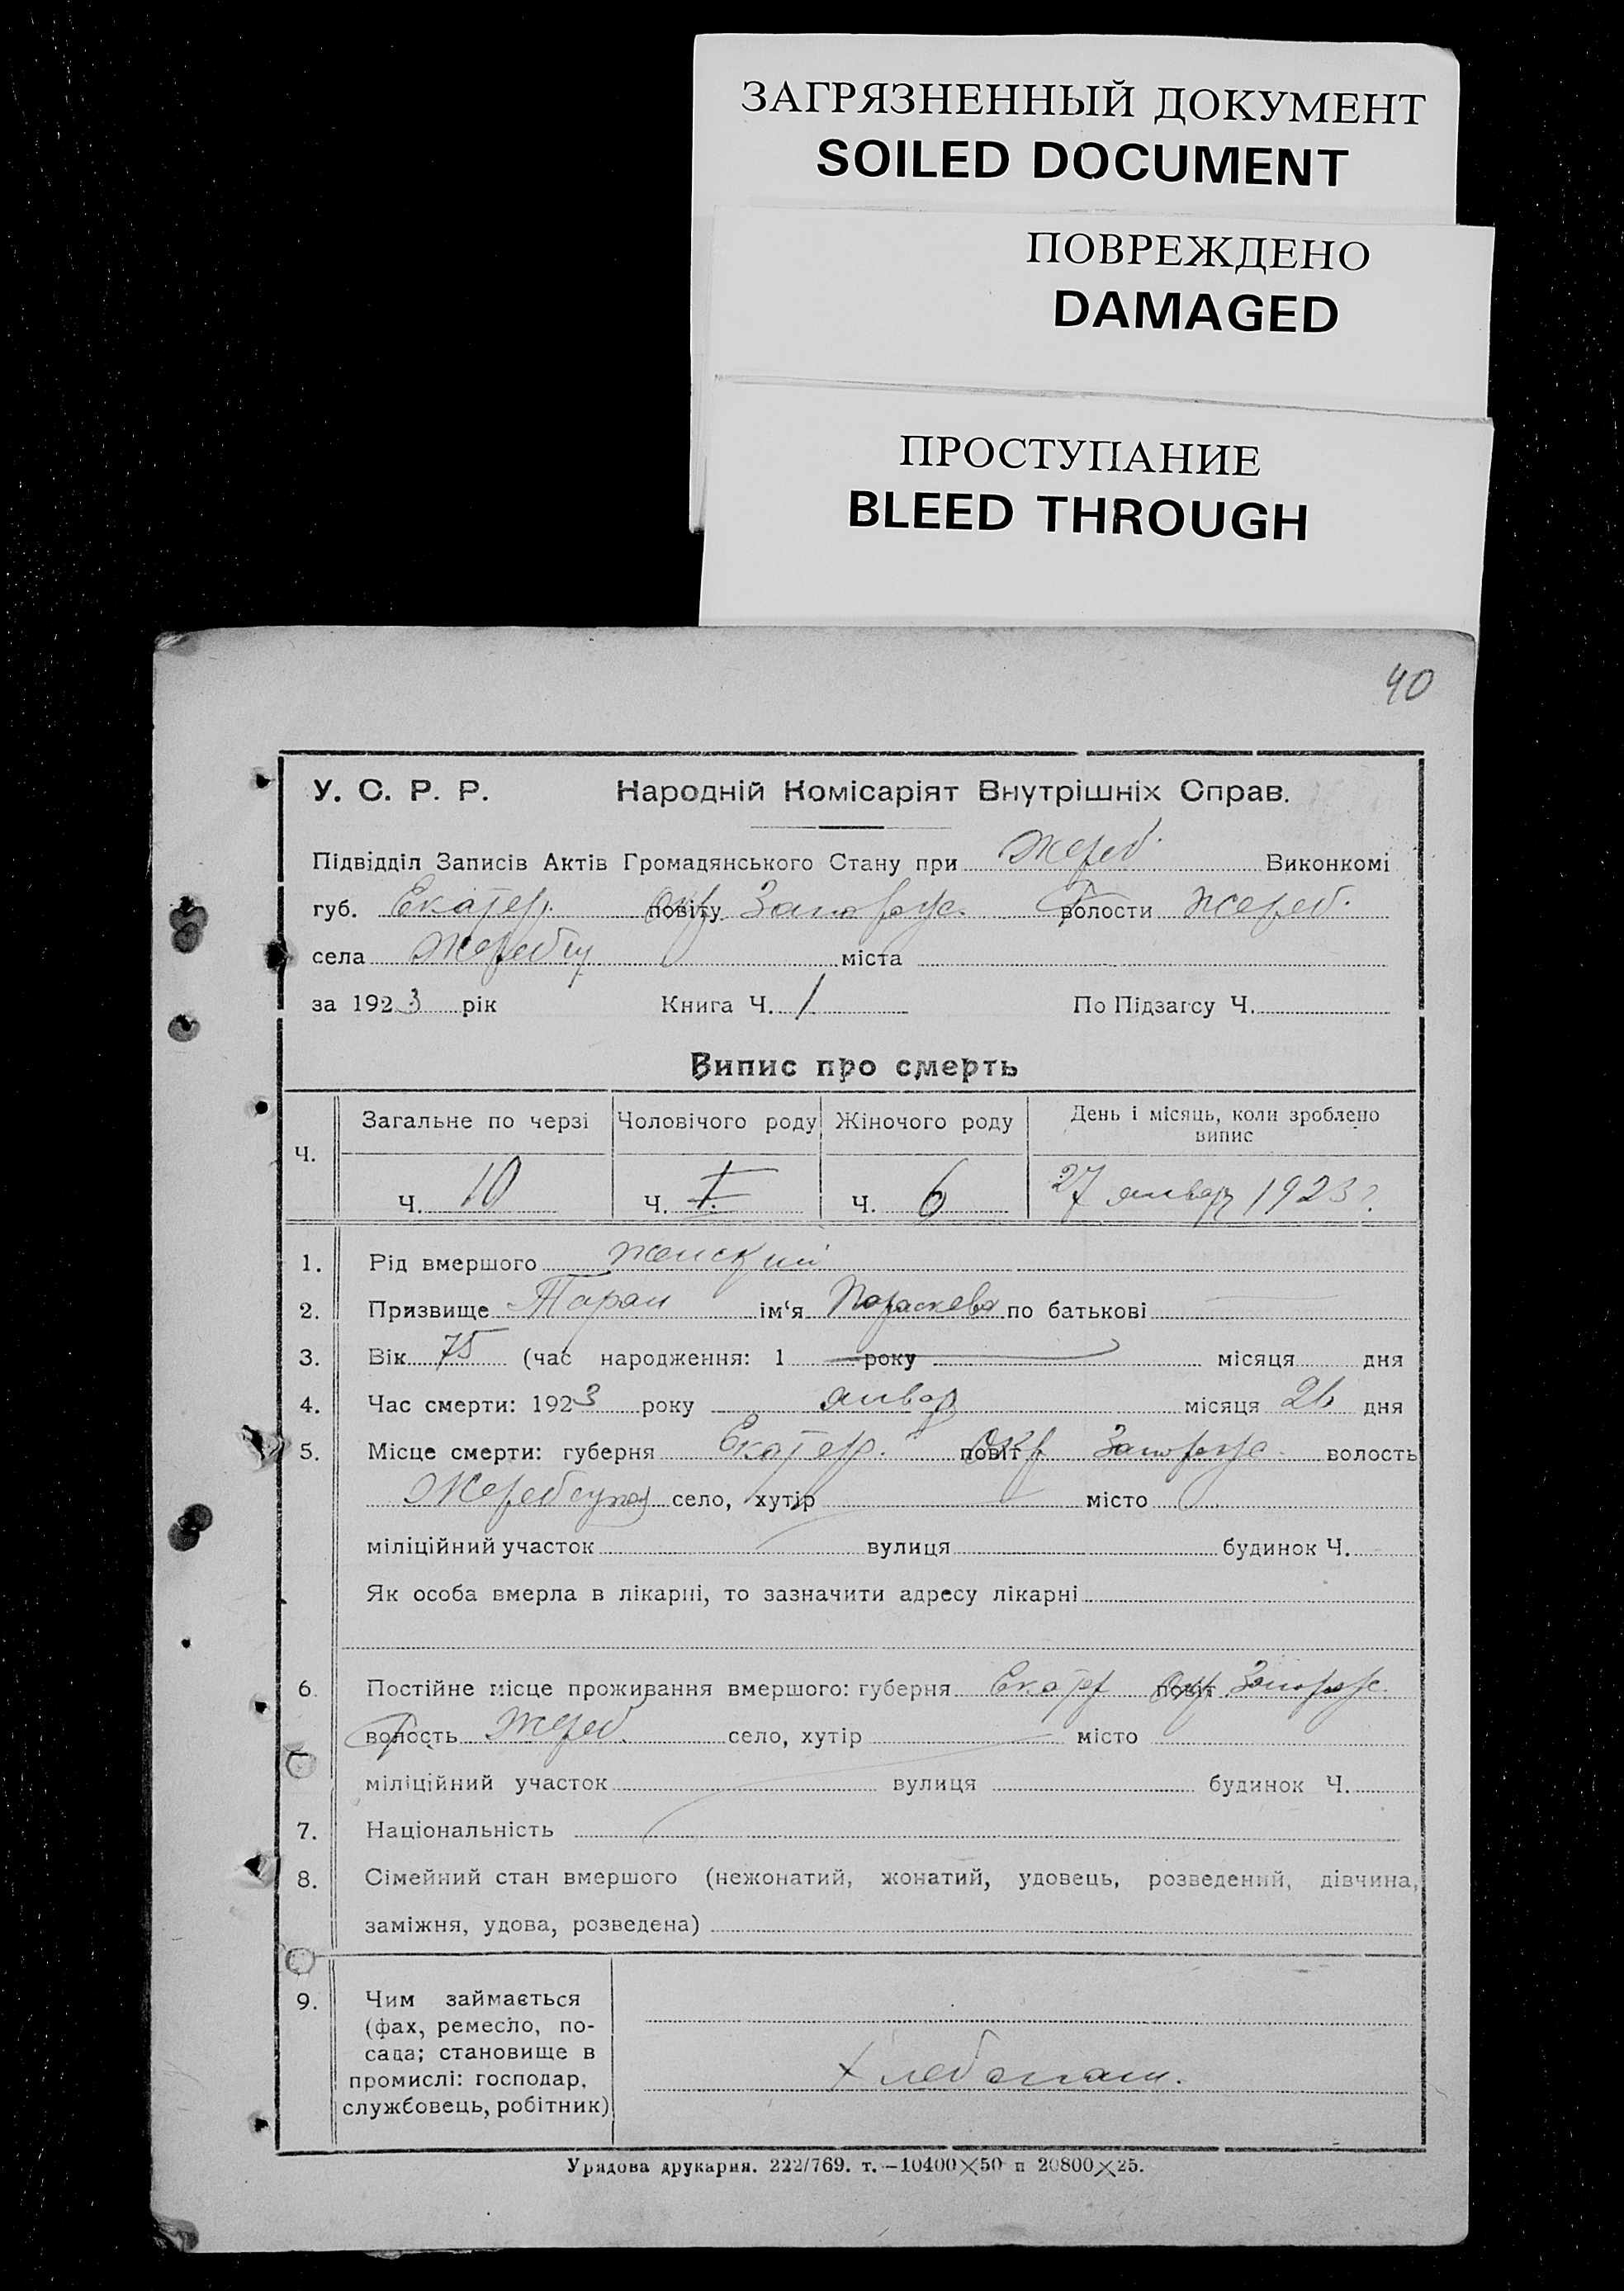 ЗАГРЯЗНЕННЫЙ ДОКУМЕНТ
SOILED DOCUMENT
ПОВРЕЖДЕНО
DAMAGED
ПРОСТУПАНИЕ
BLEED THROUGH
40
У. С. Р. Р. Народній Комісаріят Внутрішніх Справ.
Підвідділ Записів Актів Громадянського Стану при Жереб. Виконкомі
губ. Екатер. повіту Окр Запорож. волости Р Жереб.
села Жеребец міста
за 1923 рік Книга Ч. 1 По Підзагсу Ч.
Випис про смерть
Ч. Загальне по черзі Чоловічого роду Жіночого роду День і місяць, коли зроблено випис
Ч. 10 Ч. Ч. 6 27 январ 1923 г.
1. Рід вмершого женский
2. Призвище Таран ім‘я Параскева по батькові
3. Вік 75 (час народження: 1 року місяця дня
4. Час смерти: 1923 року январ місяця 26 дня
5. Місце смерти: губерня Екатер. повіт Окр Запорож. волость
село, хутір місто
міліційний участок вулиця будинок Ч.
Як особа вмерла в лікарні, то зазначити адресу лікарні
6. Постійне місце проживання вмершого: губерня Екатер повіт Окр Запорож.
волость Р Жереб. село, хутір місто
міліційний участок вулиця будинок Ч.
7. Національність
8. Сімейний стан вмершого (нежонатий, жонатий, удовець, розведений, дівчина,
заміжня, удова, розведена)
9. Чим займається
(фах, ремесло, по-
сада; становище в
промислі: господар,
службовець, робітник)
Хлебопаш.
Урядова друкарня. 222/769. т.—10400×50 п 20800×25.